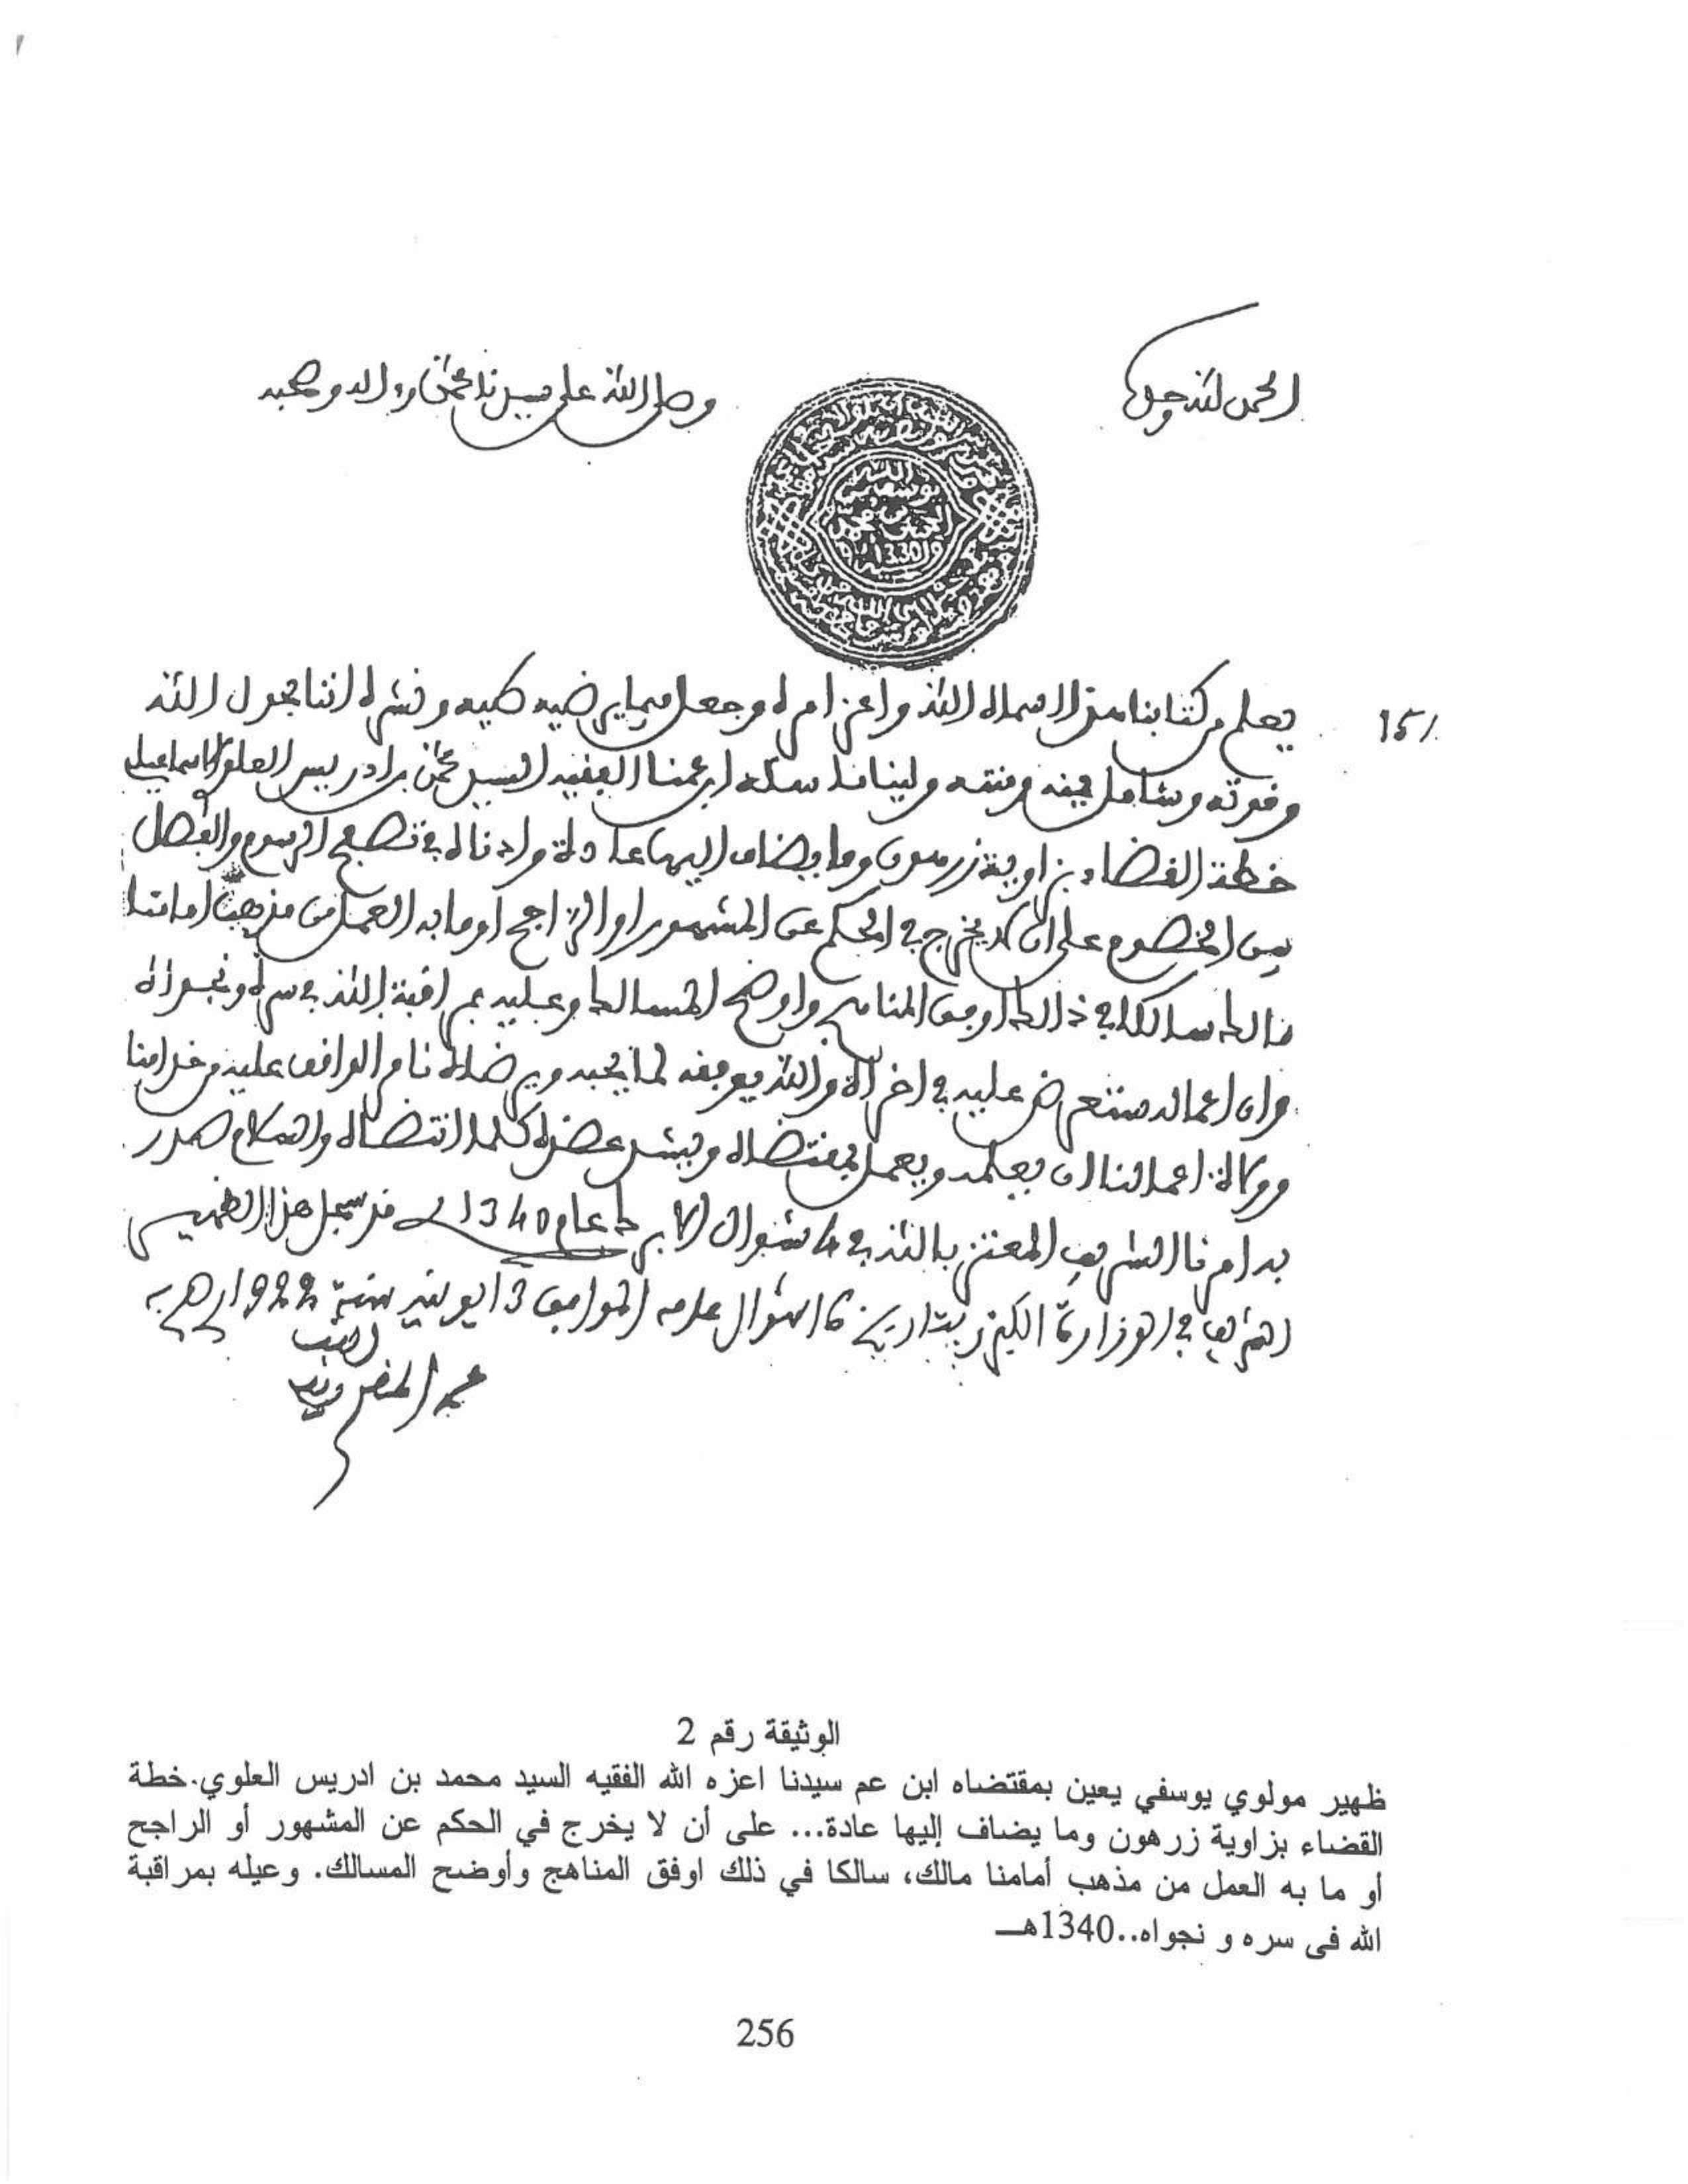 الحمد لله وحده
وصلى الله على سيدنا محمد وءاله وصحبه
يعلم من كتابنا هذا اسماه الله واعز امره وجعل فيما يرضيه طيه ونشره اننا بحول الله
وقوته وشامل يمنه ومنته ولينا ماسكه ابن عمنا الفقيه السيد محمد بن ادريس العلوي الاسماعيلي
خطة القضاء بزاوية زرهون وما يضاف اليها عادة واذنا له في تصفح الرسوم والفصل
بين الخصوم على ان لا يخرج في الحكم عن المشهور او الراجح او ما به العمل من مذهب امامنا
مالك سالكا في ذالك اوفق المناهج واوضح المسالك وعليه بمراقبة الله في سره ونجواه
وان اعماله ستعرض عليه في اخراه والله يوفقه لما يحبه ويرضاه نامر الواقف عليه من خدامنا
وولاة اعمالنا ان يعلمه ويعمل بمقتضاه ويشد عضده كلما اقتضاه والسلام صدر
به امرنا الشريف المعتز بالله في 4 شوال الابرك عام 1340 قد سجل هذا الظهير
الشريف في الوزارة الكبرى بتاريخ شوال عامه الموافق 13 يونيه سنة 1922
محمد المقري
15/
1330
الوثيقة رقم 2
ظهير مولوي يوسفي يعين بمقتضاه ابن عم سيدنا اعزه الله الفقيه السيد محمد بن ادريس العلوي.خطة
القضاء بزاوية زرهون وما يضاف إليها عادة... على أن لا يخرج في الحكم عن المشهور أو الراجح
أو ما به العمل من مذهب أمامنا مالك، سالكا في ذلك اوفق المناهج وأوضح المسالك. وعيله بمراقبة
الله في سره و نجواه..1340هـ
256